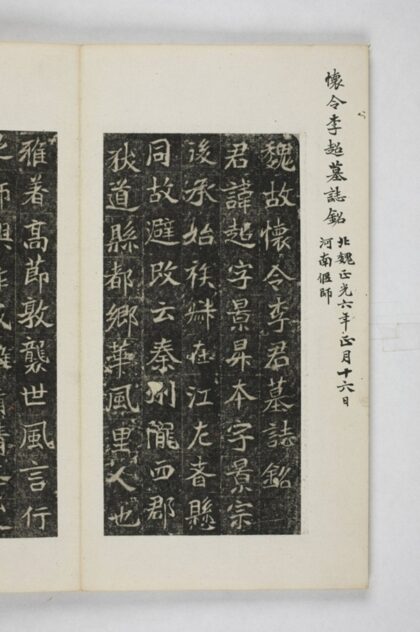 懷令李超墓誌銘
北魏正光六年正月十六日
河南偃師
魏故懷令李君墓誌銘
君諱超字景昇本字景宗
後承始族叔在江左者懸
同故避改云秦州隴西郡
狄道縣都鄉華風里人也
雅著高節敦襲世風言行